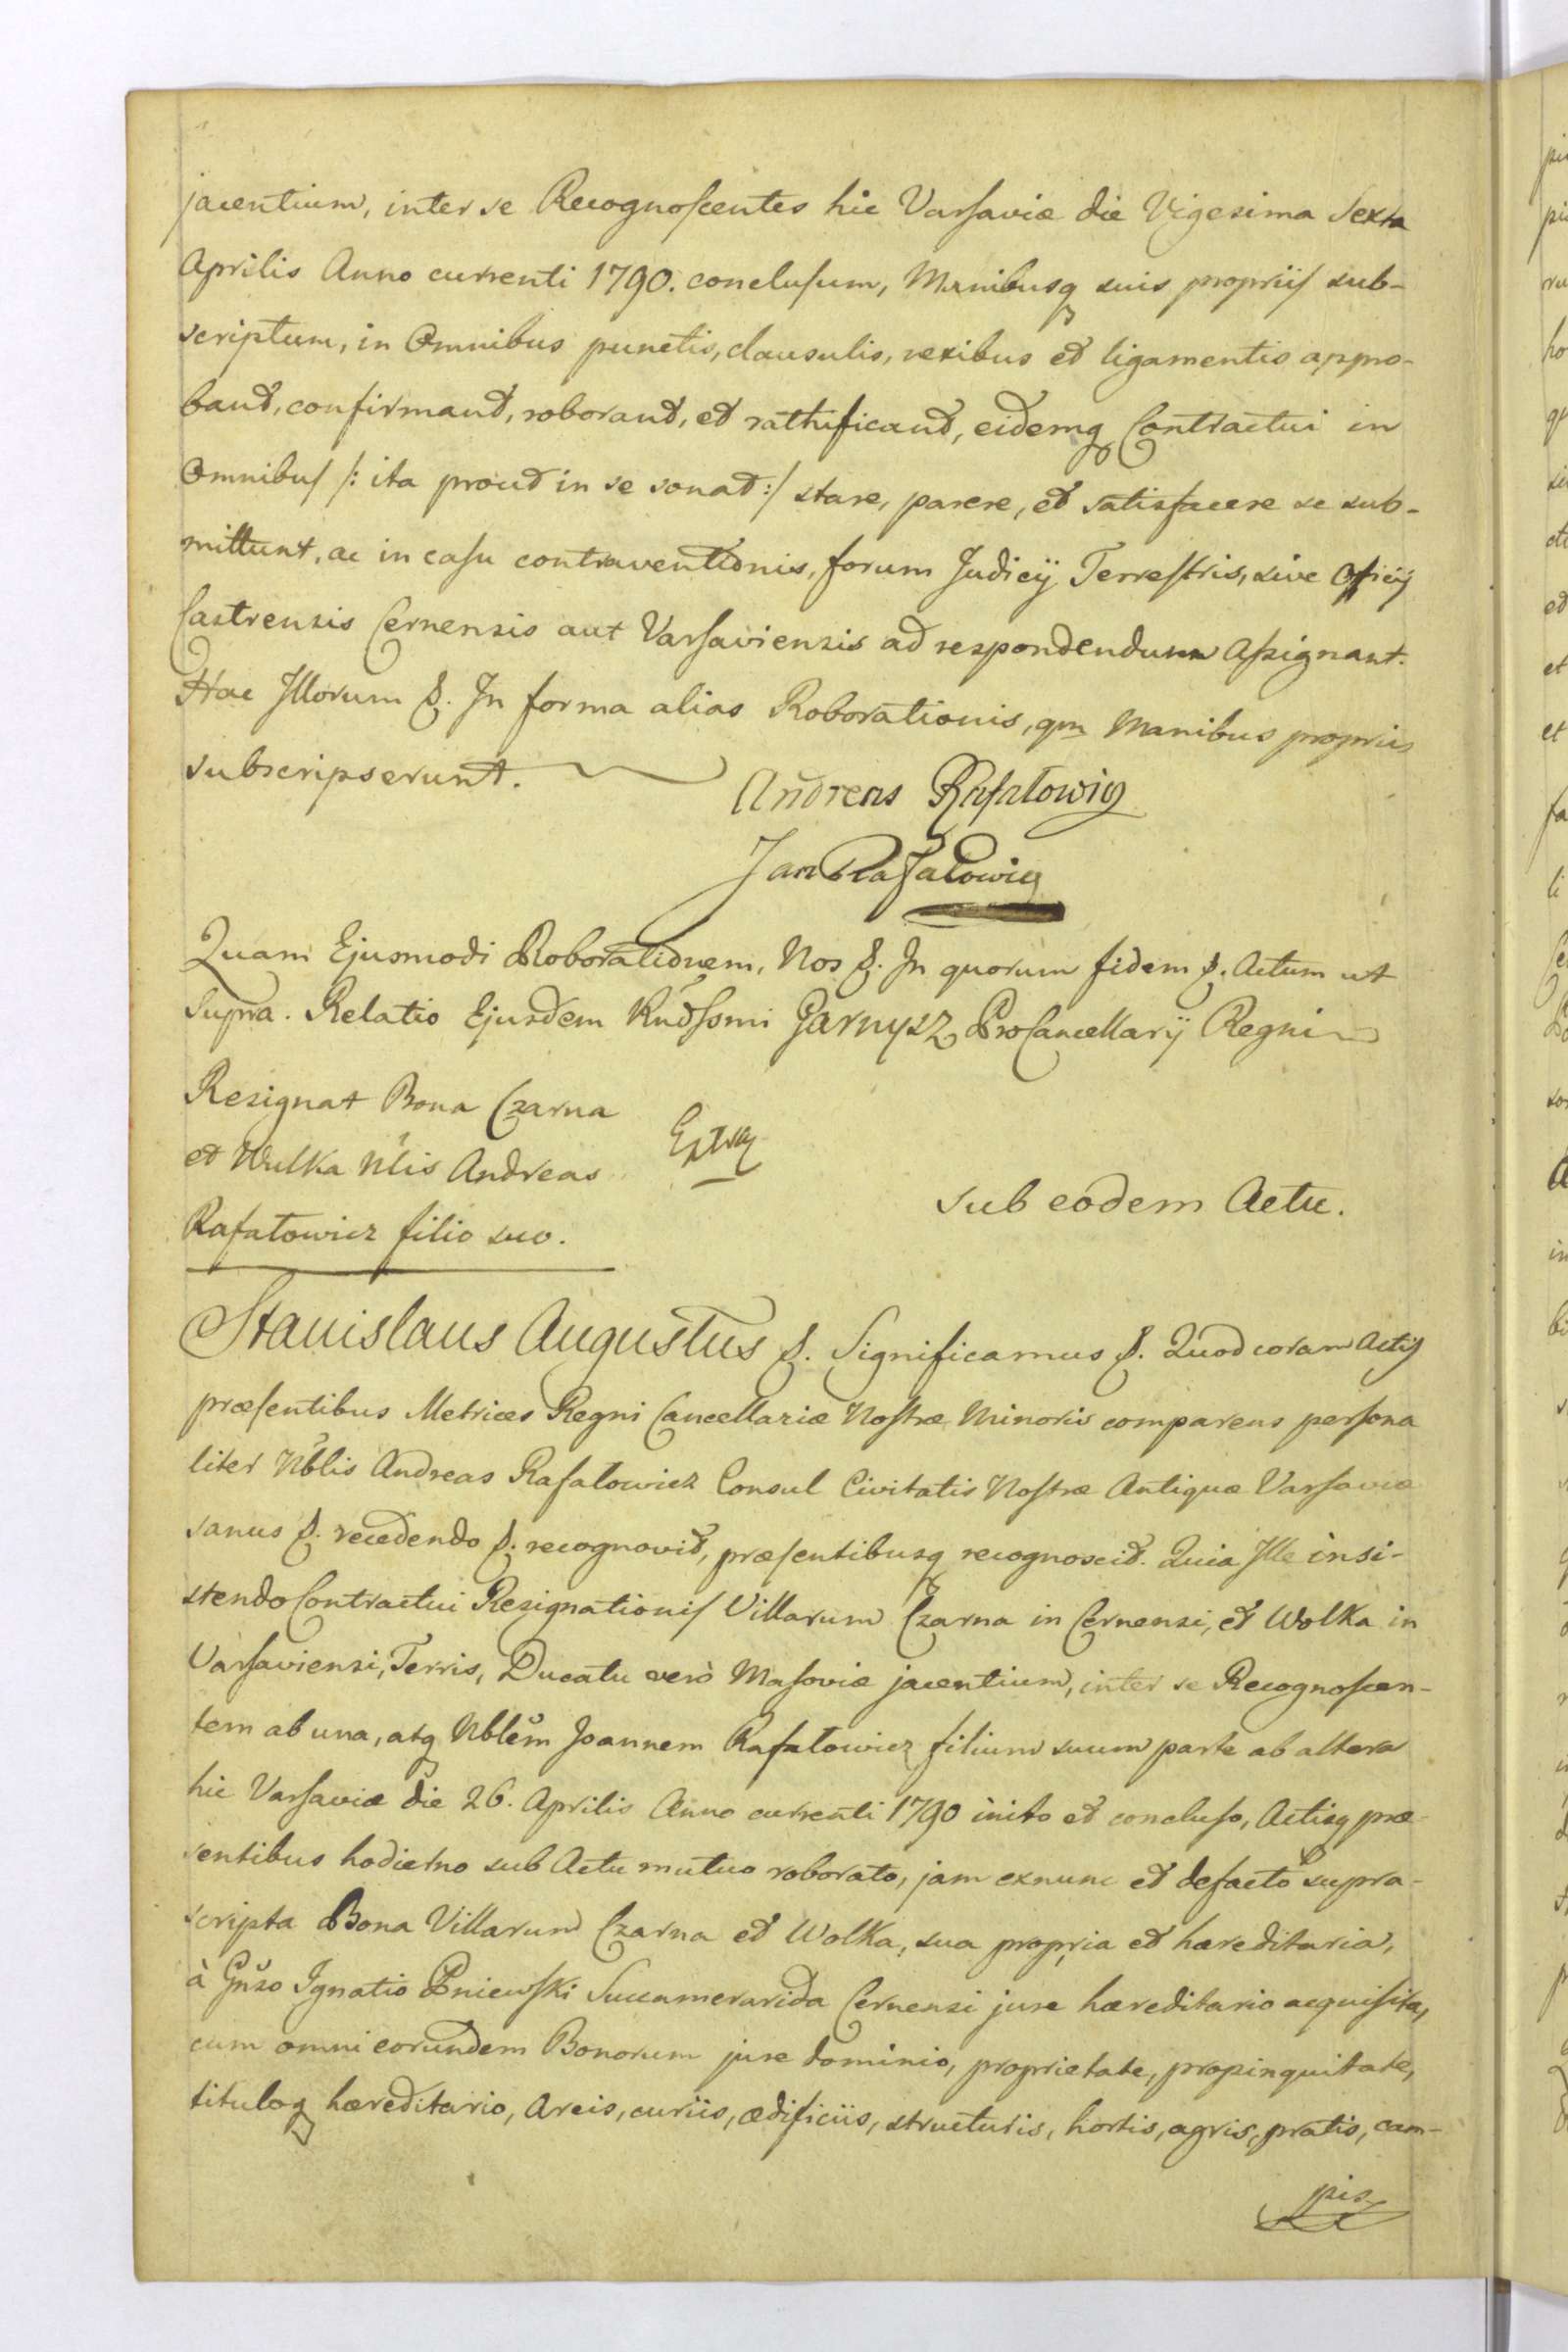 jacentium, inter se Recognoscentes hic Varsaviæ die Vigesima Sexta
Aprilis Anno currenti 1790. conclusum, Manibusq suis propriis sub-
scriptum, in Omnibus punctis, clausulis, nexibus et ligamentis appro-
band, confirmand, roborand, et rathificand, eidemq Contractui in
Omnibus /: ita prout in se sonat :/ stare, parere, et satisfacere se sub-
mittunt, ac in casu contraventionis, forum Judicÿ Terrestris, sive Officÿ
Castrensis Cernensis aut Varsaviensis ad respondendum assignant.
Hac Illorum &. In forma alias Roborationis, qm Manibus propriis
subscripserunt.
Andreas Rafałowicz
Jan Rafałowicz
Quam Ejusmodi Roborationem, Nos &. In quorum fidem &. Actum ut
Supra. Relatio Ejusdem Rndssmi Garnysz ProCancellarÿ Regni
Resignat Bona Czarna
et Wulka Nlis Andreas
Rafałowicz filio suo.
Extra
Sub eodem Actu.
Stanislaus Augustus &. Significamus &. Quod coram Actis
præsentibus Metrices Regni Cancellariæ Nostræ Minoris comparens persona
liter Nblis Andreas Rafałowicz Consul Civitatis Nostræ Antiquæ Varsaviæ
sanus &. recedendo &. recognovit, præsentibusq recognoscit. Quia Ille insi-
stendo Contractui Resignationis Villarum Czarna in Cernensi, et Wolka in
Varsaviensi, Terris, Ducatu verò Masoviæ jacentium, inter se Recognoscen-
tem ab una, atq Nblem Joannem Rafałowicz filium suum parte ab altera
hic Varsaviæ die 26. Aprilis Anno currenti 1790 inito et concluso, Actisq præ-
sentibus hodierno sub Actu mutuo roborato, jam exnunc et defacto supra-
scripta Bona Villarum Czarna et Wolka, sua propria et hæreditaria,
à Gnso Ignatio Pniewski Succamerarida Cernensi jure hæreditario acquisita,
cum omni eorundem Bonorum jure dominio, proprietate, propinquitate,
tituloq hæreditario, Areis, curiis, ædificiis, structuris, hortis, agris, pratis, cam-
pis